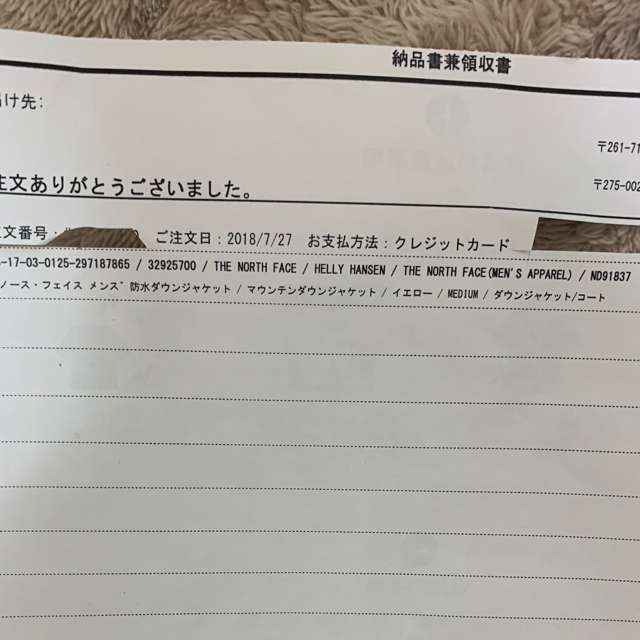 納品書兼領収書
け先:
〒261-71
〒275-002
注文ありがとうございました。
文番号: ご注文日:2018/7/27 お支払方法:クレジットカード
-17-03-0125-297187865 / 32925700 / THE NORTH FACE / HELLY HANSEN / THE NORTH FACE(MEN'S APPAREL) / ND91837
ノース・フェイス メンズ 防水ダウンジャケット / マウンテンダウンジャケット / イエロー / MEDIUM / ダウンジャケット/コート